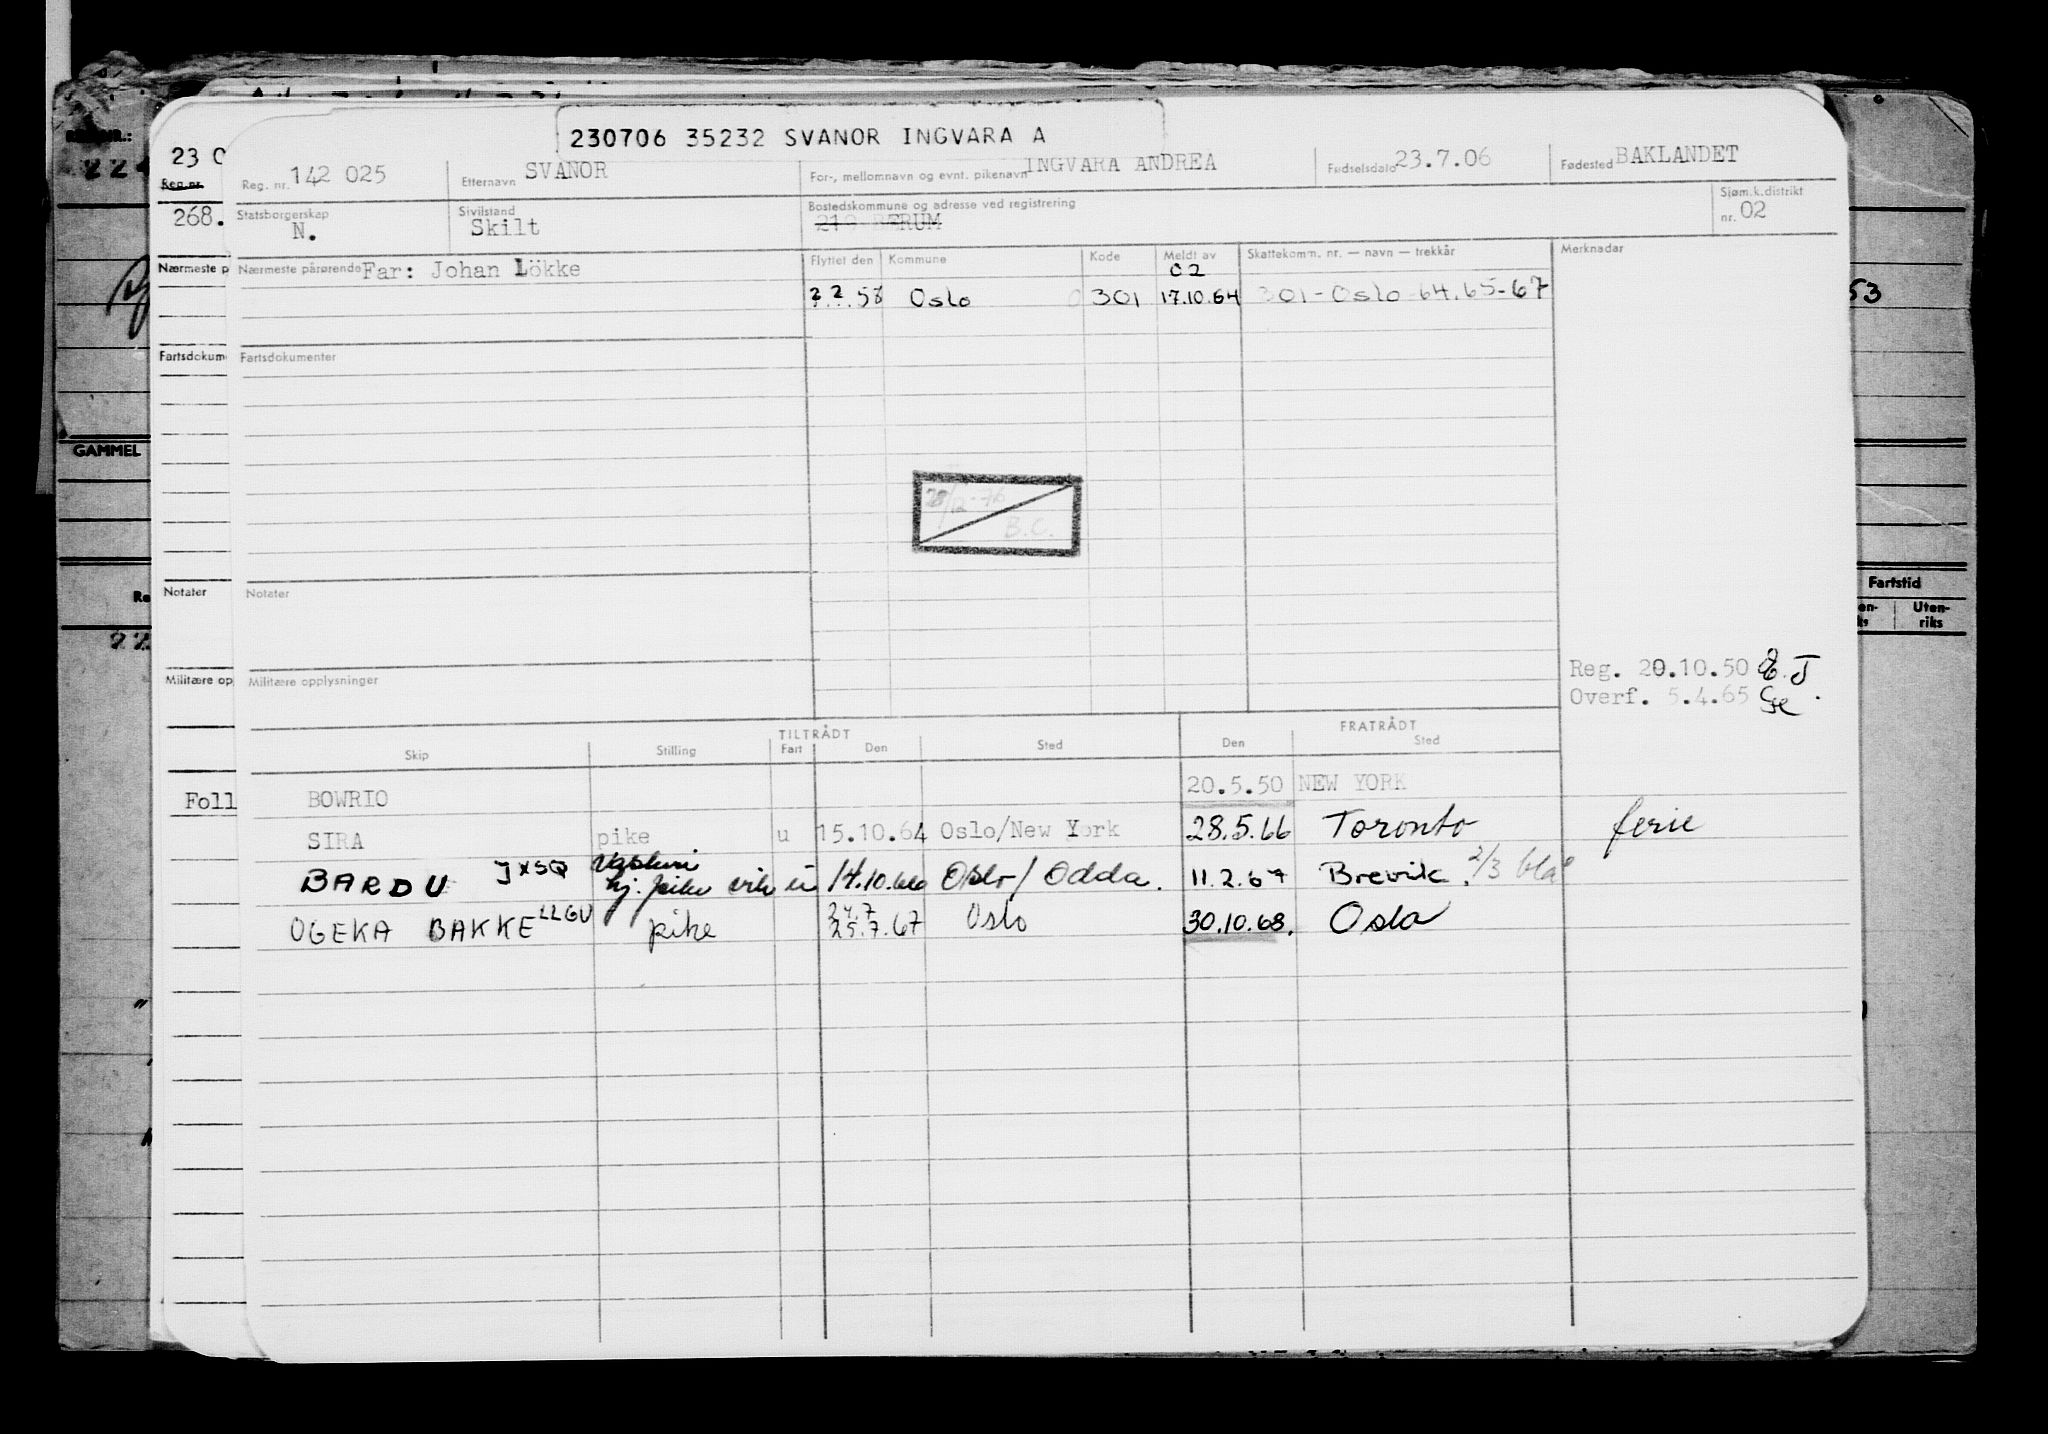 230706 35232 SVANOR INGVARA A
Reg. nr. 142 025 Etternavn SVANOR For-, mellomnavn og evnt. pikenavn INGVARA ANDREA Fødselsdato 23.7.06 Fødested BAKLANDET
Statsborgerskap N. Sivilstand Skilt Bostedskommune og adresse ved registrering Sjøm.k.distrikt nr. 02
Nærmeste pårørende Far: Johan Lökke Flyttet den Kommune Kode Meldt av Skattekomm. nr. — navn — trekkår Merknader
02
2.2.58 Oslo 0301 17.10.64 301-Oslo 64.65-67
Fartsdokumenter
B.C.
Notater
Reg. 20.10.50
Overf. 5.4.65
Militære opplysninger
TILTRÅDT FRATRÅDT
Skip Stilling Fart Den Sted Den Sted
BOWRIO 20.5.50 NEW YORK
SIRA pike u 15.10.64 Oslo/New York 28.5.66 Toronto ferie
BARDU JXSQ u 14.10.66 Oslo/Odda. 11.2.67 Brevik. 2/3 blå
OGEKA BAKKE LLGU pike 24.7 25.7.67 Oslo 30.10.68. Oslo
23 0
Reg.nr.
268.
Nærmeste p
Fartsdokum
Notater
Militære op
Foll
GAMMEL
53
Fartstid
Uten-
riks